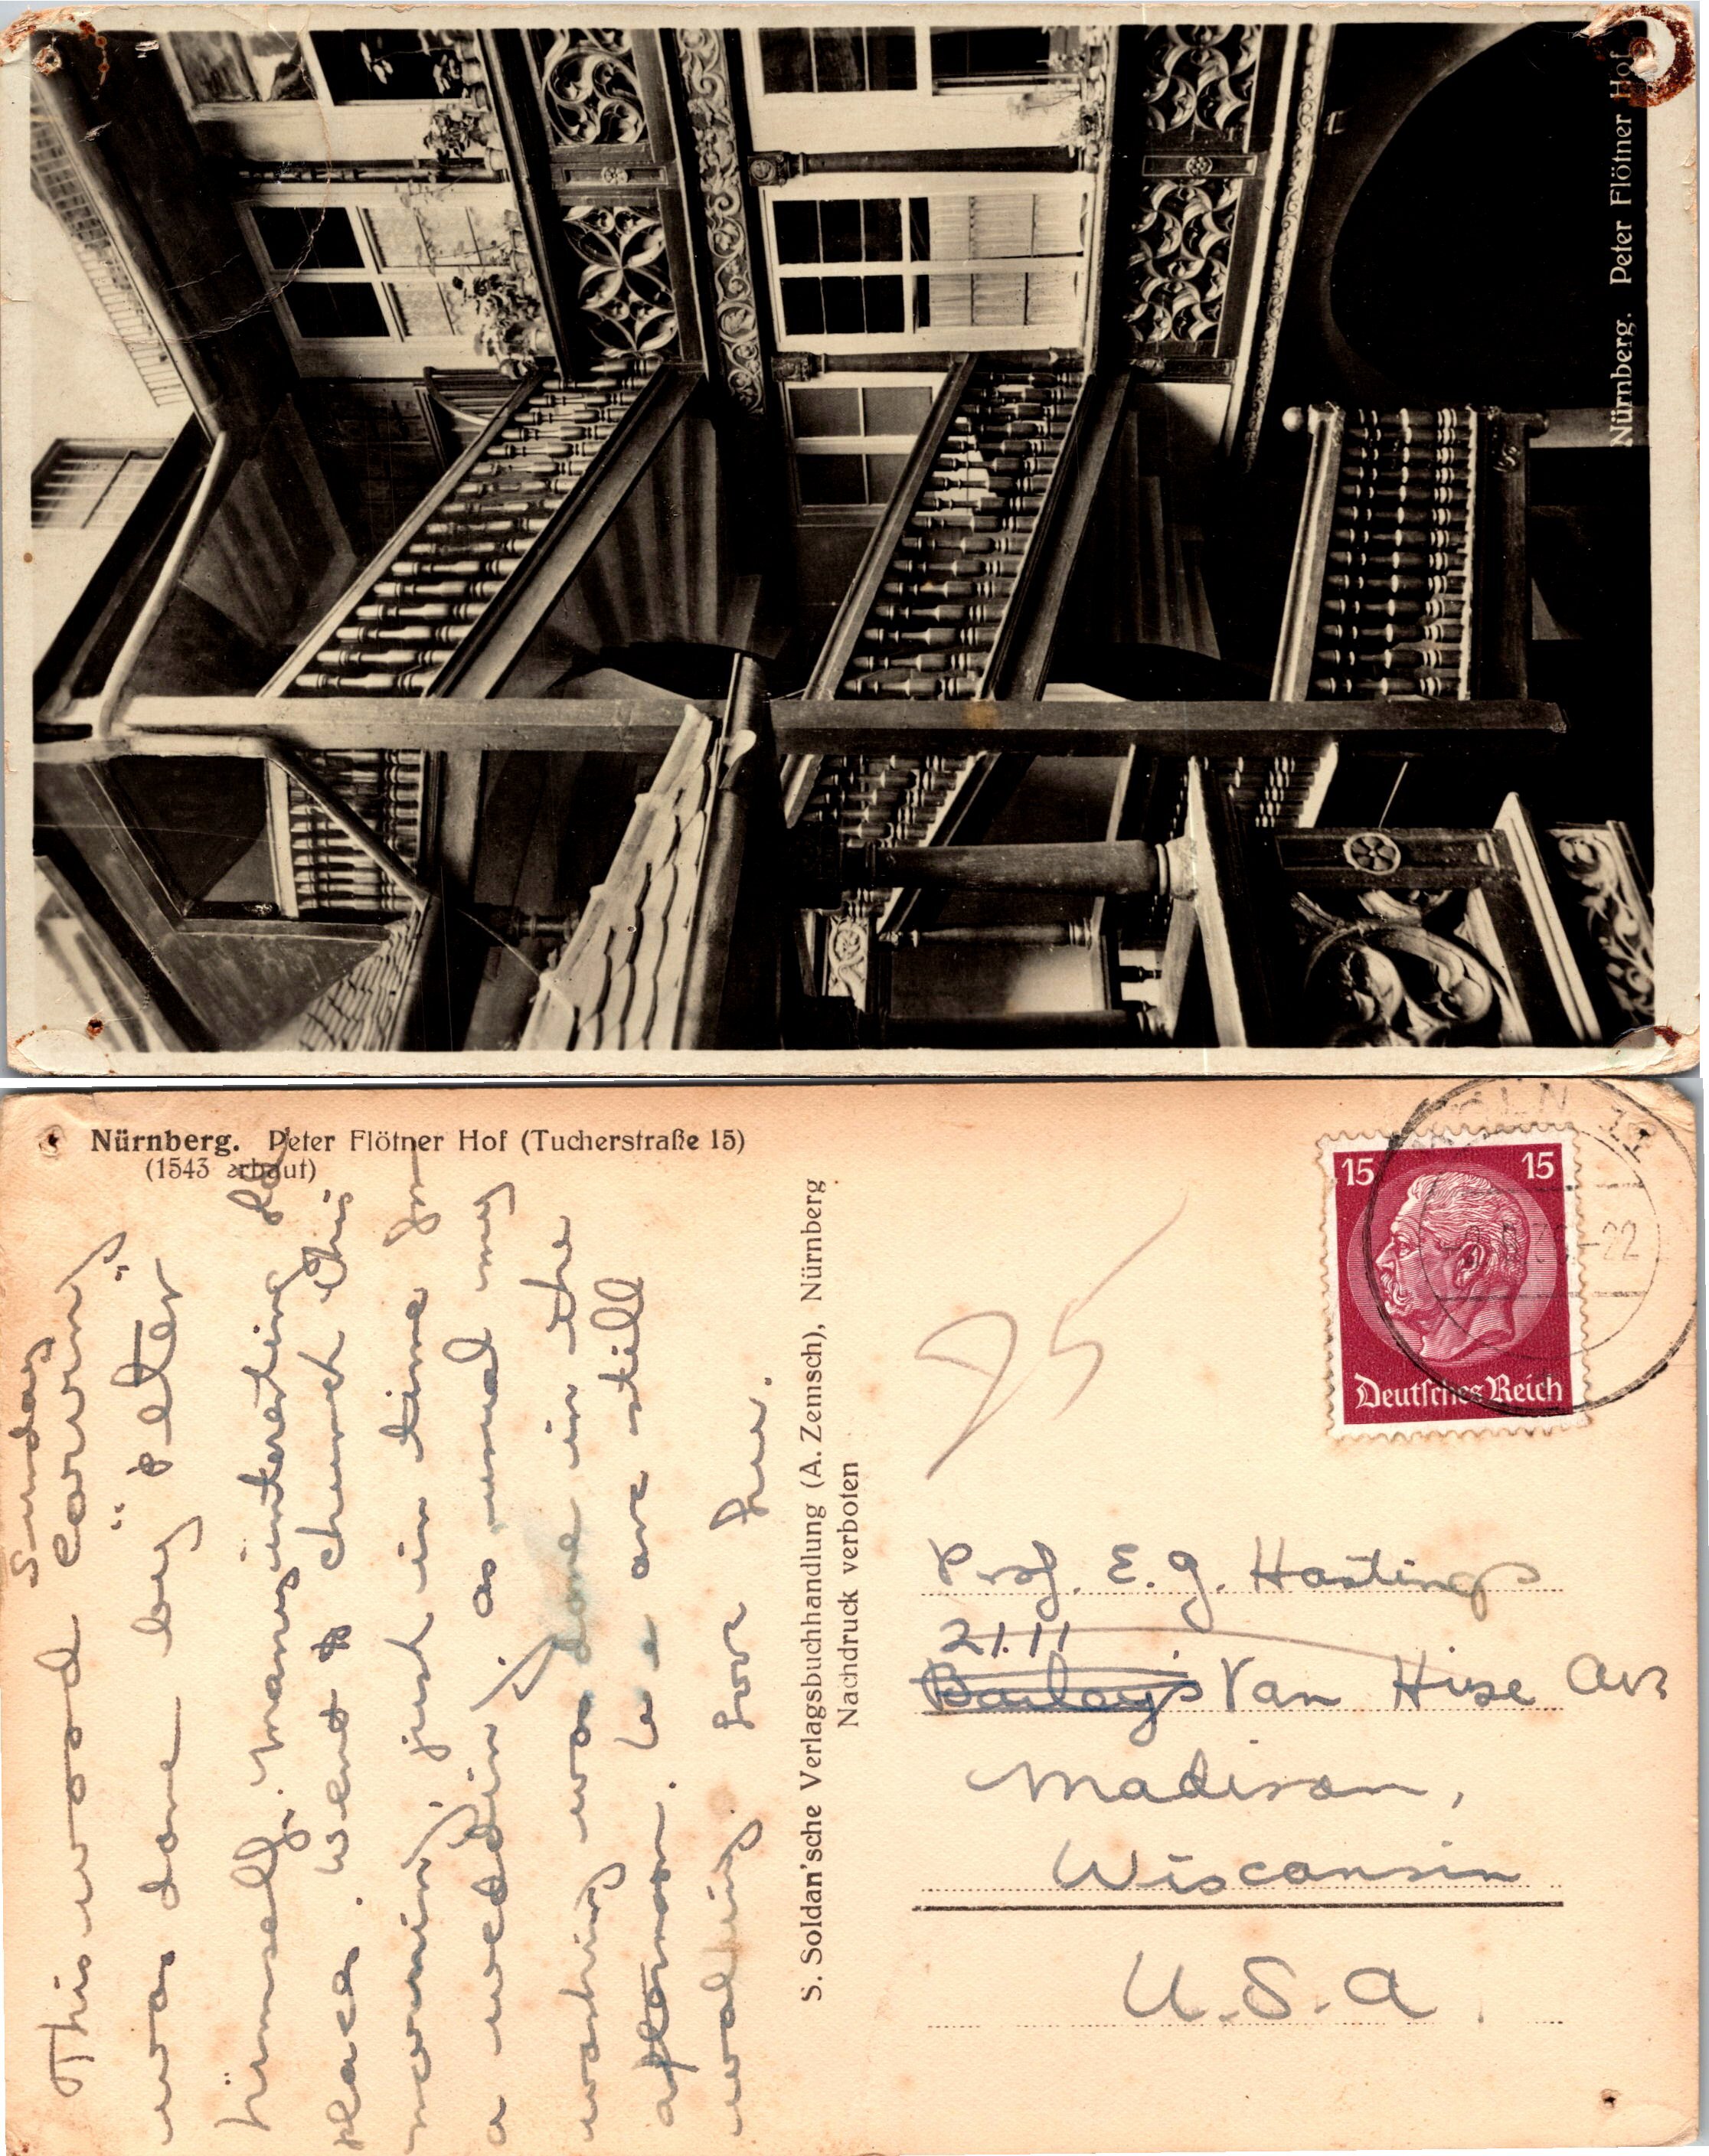 Nürnberg. Peter Flötner Hof
Nürnberg. Peter Flötner Hof (Tucherstraße 15)
(1543 erbaut)
Sunday
This wood carving
was done by "Peter"
himself. Many interesting
places. Went to church this
morning, just in time for
a wedding, as usual my
washing was done in the
afternoon. We are still
walking. Love
S. Soldan'sche Verlagsbuchhandlung (A. Zemsch), Nürnberg
Nachdruck verboten
15 15
Deutsches Reich
-22
Prof. E. G. Hastings
2111
Van Hise Ave
Madison,
Wisconsin
U.S.A.